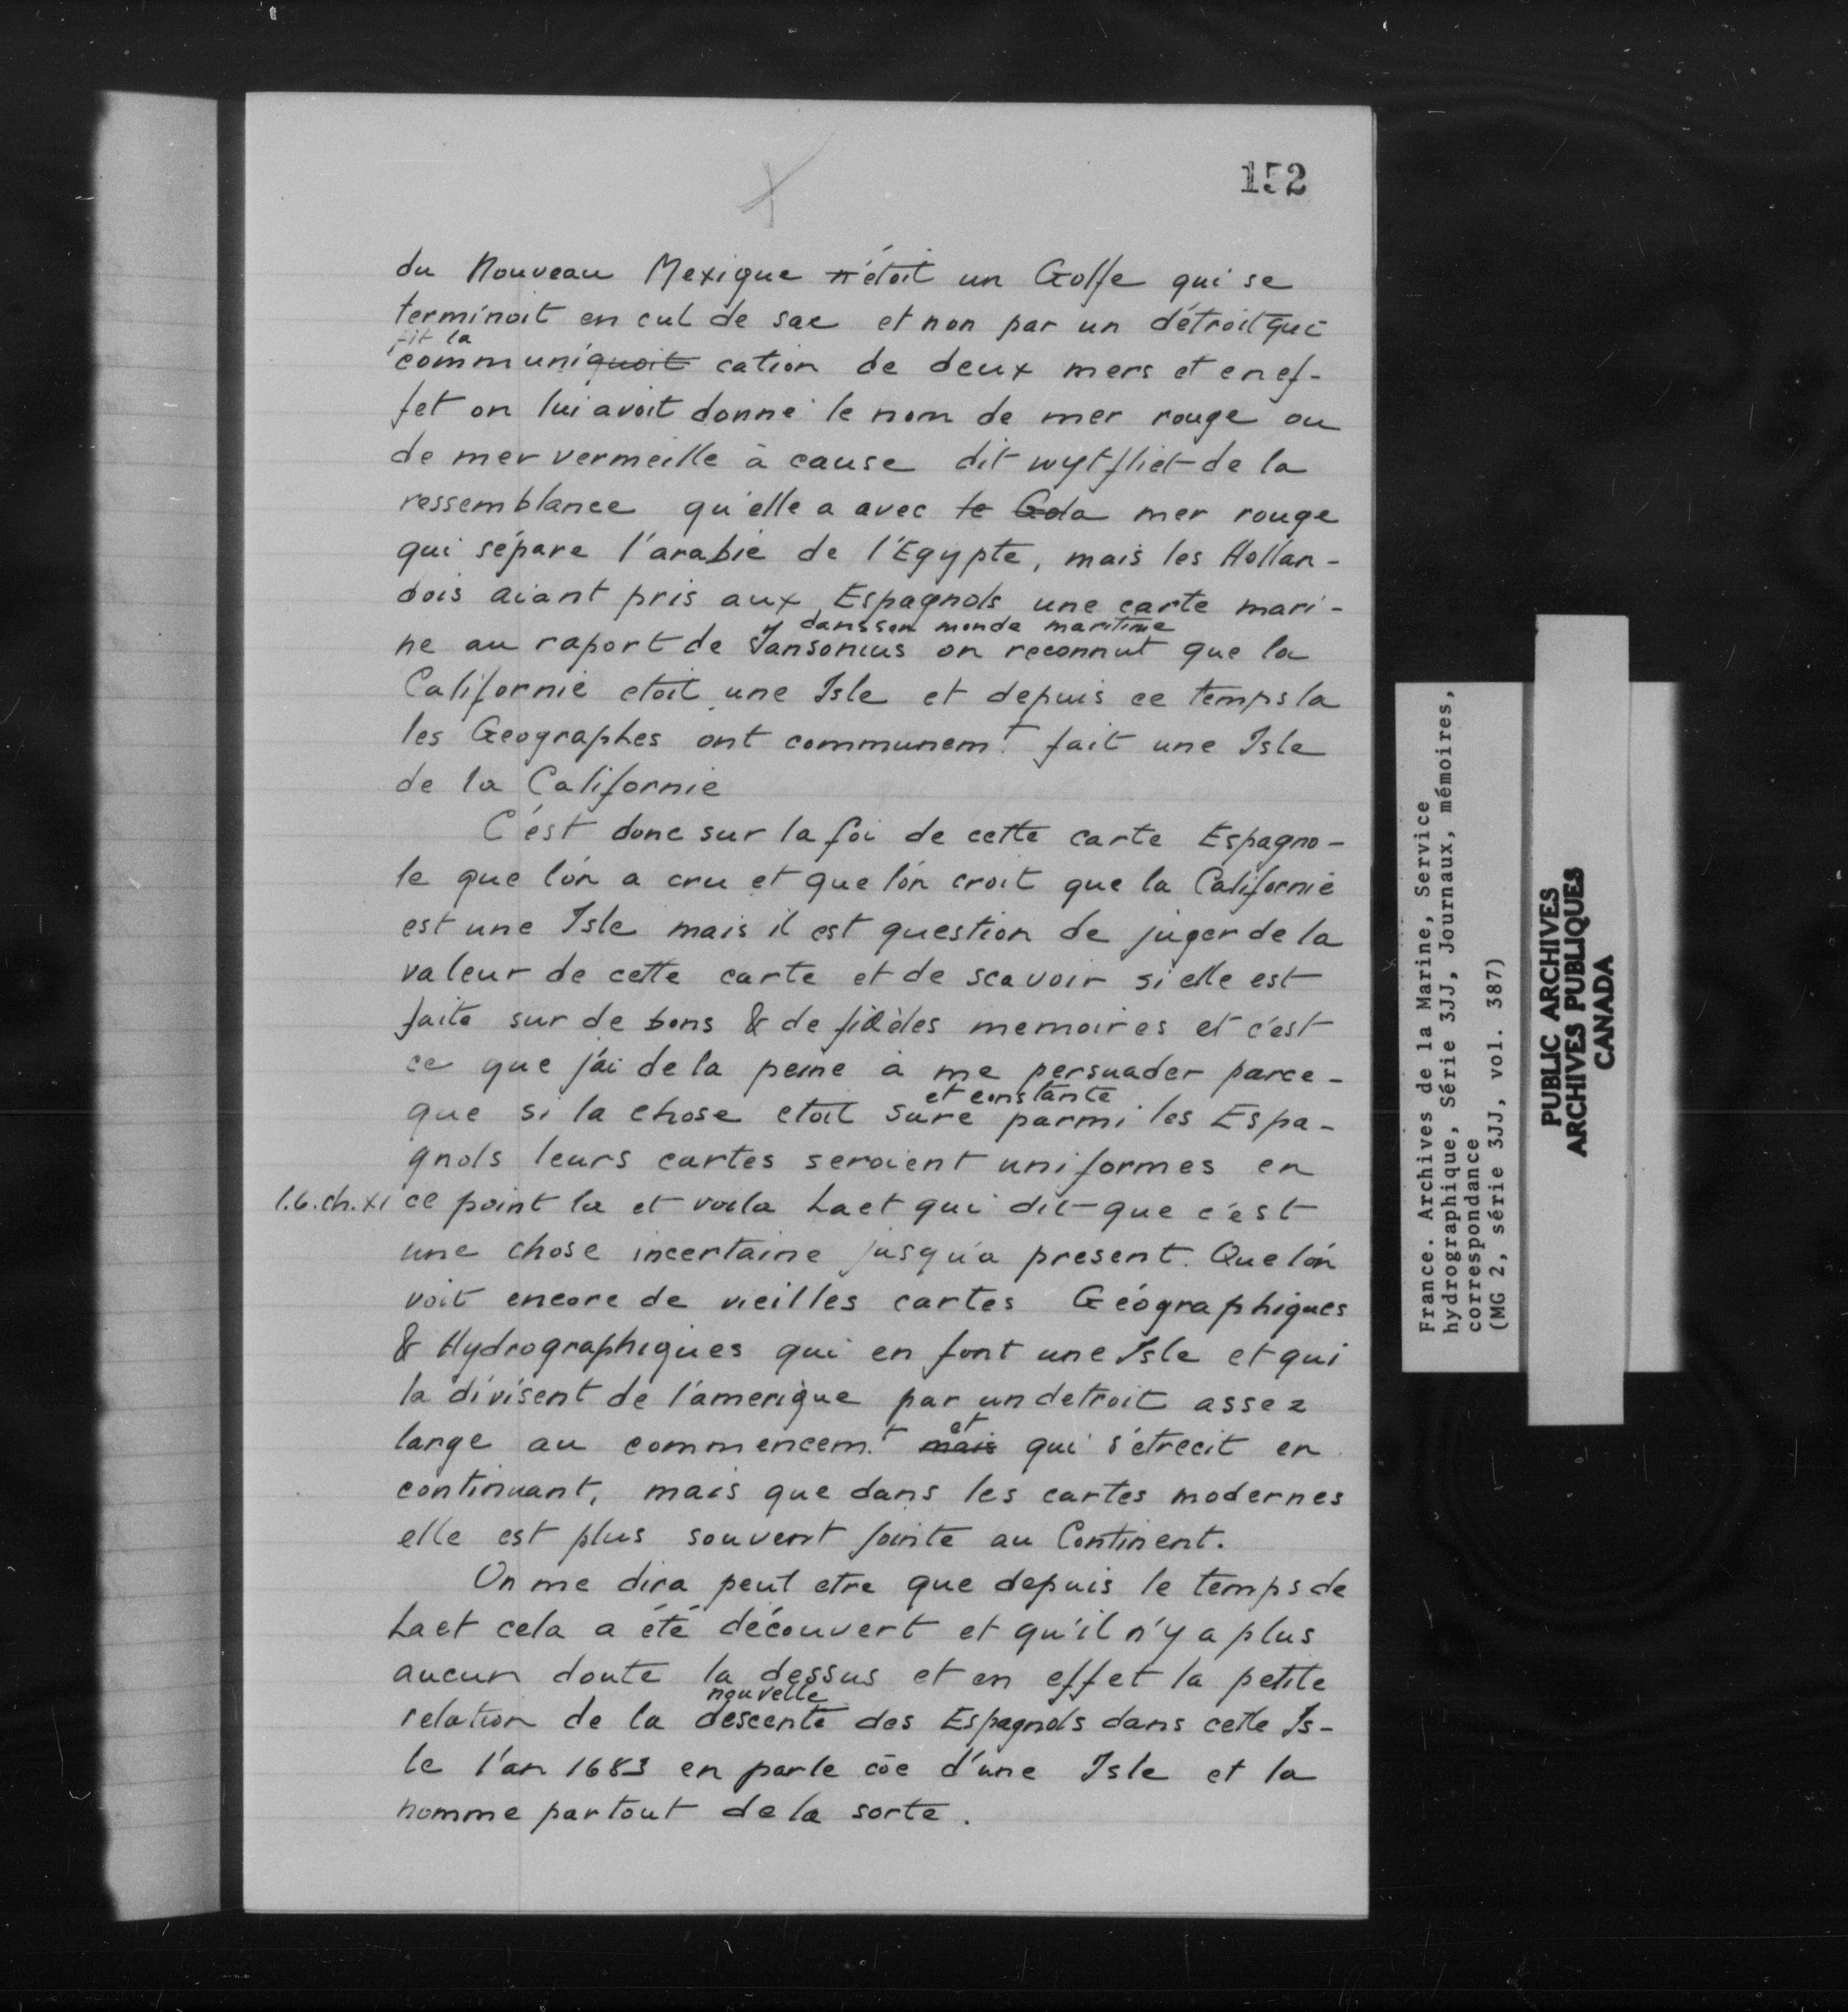 152
du Nouveau Mexique n'étoit un Golfe qui se
terminoit en cul de sac et non par un détroit qui
fit la
communiquoit cation de deux mers et en ef-
fet on lui avoit donné le nom de mer rouge ou
de mer vermeille à cause dit wytfliet de la
ressemblance qu'elle a avec le Gola mer rouge
qui sépare l'arabie de l'Egypte, mais les Hollan-
dois aiant pris aux Espagnols une carte mari-
dans son monde maritime
ne au raport de Jansonius on reconnut que la
Californie etoit une Isle et depuis ce temps la
les Geographes ont communemt fait une Isle
de la Californie
C'est donc sur la foi de cette carte Espagno-
le que l'on a cru et que l'on croit que la Californie
est une Isle mais il est question de juger de la
valeur de cette carte et de scavoir si elle est
faite sur de bons & de fidèles memoires et c'est
ce que j'ai de la peine à me persuader parce-
et constante
que si la chose etoit sure parmi les Espa-
gnols leurs cartes seroient uniformes en
l.6.ch.XI ce point la et voila Laet qui dit que c'est
une chose incertaine jusqu'a present. Que l'on
voit encore de vieilles cartes Géographiques
& Hydrographiques qui en font une Isle et qui
la divisent de l'amerique par un detroit assez
et
large au commencemt mais qui s'étrecit en
continuant, mais que dans les cartes modernes
elle est plus souvent jointe au Continent.
On me dira peut etre que depuis le temps de
Laet cela a été découvert et qu'il n'y a plus
aucun doute la dessus et en effet la petite
nouvelle
relation de la descente des Espagnols dans cette Is-
le l'an 1683 en parle cõe d'une Isle et la
nomme partout de la sorte.
France. Archives de la Marine, Service
hydrographique, Série 3JJ, Journaux, mémoires,
correspondance
(MG 2, série 3JJ, vol. 387)
PUBLIC ARCHIVES
ARCHIVES PUBLIQUES
CANADA